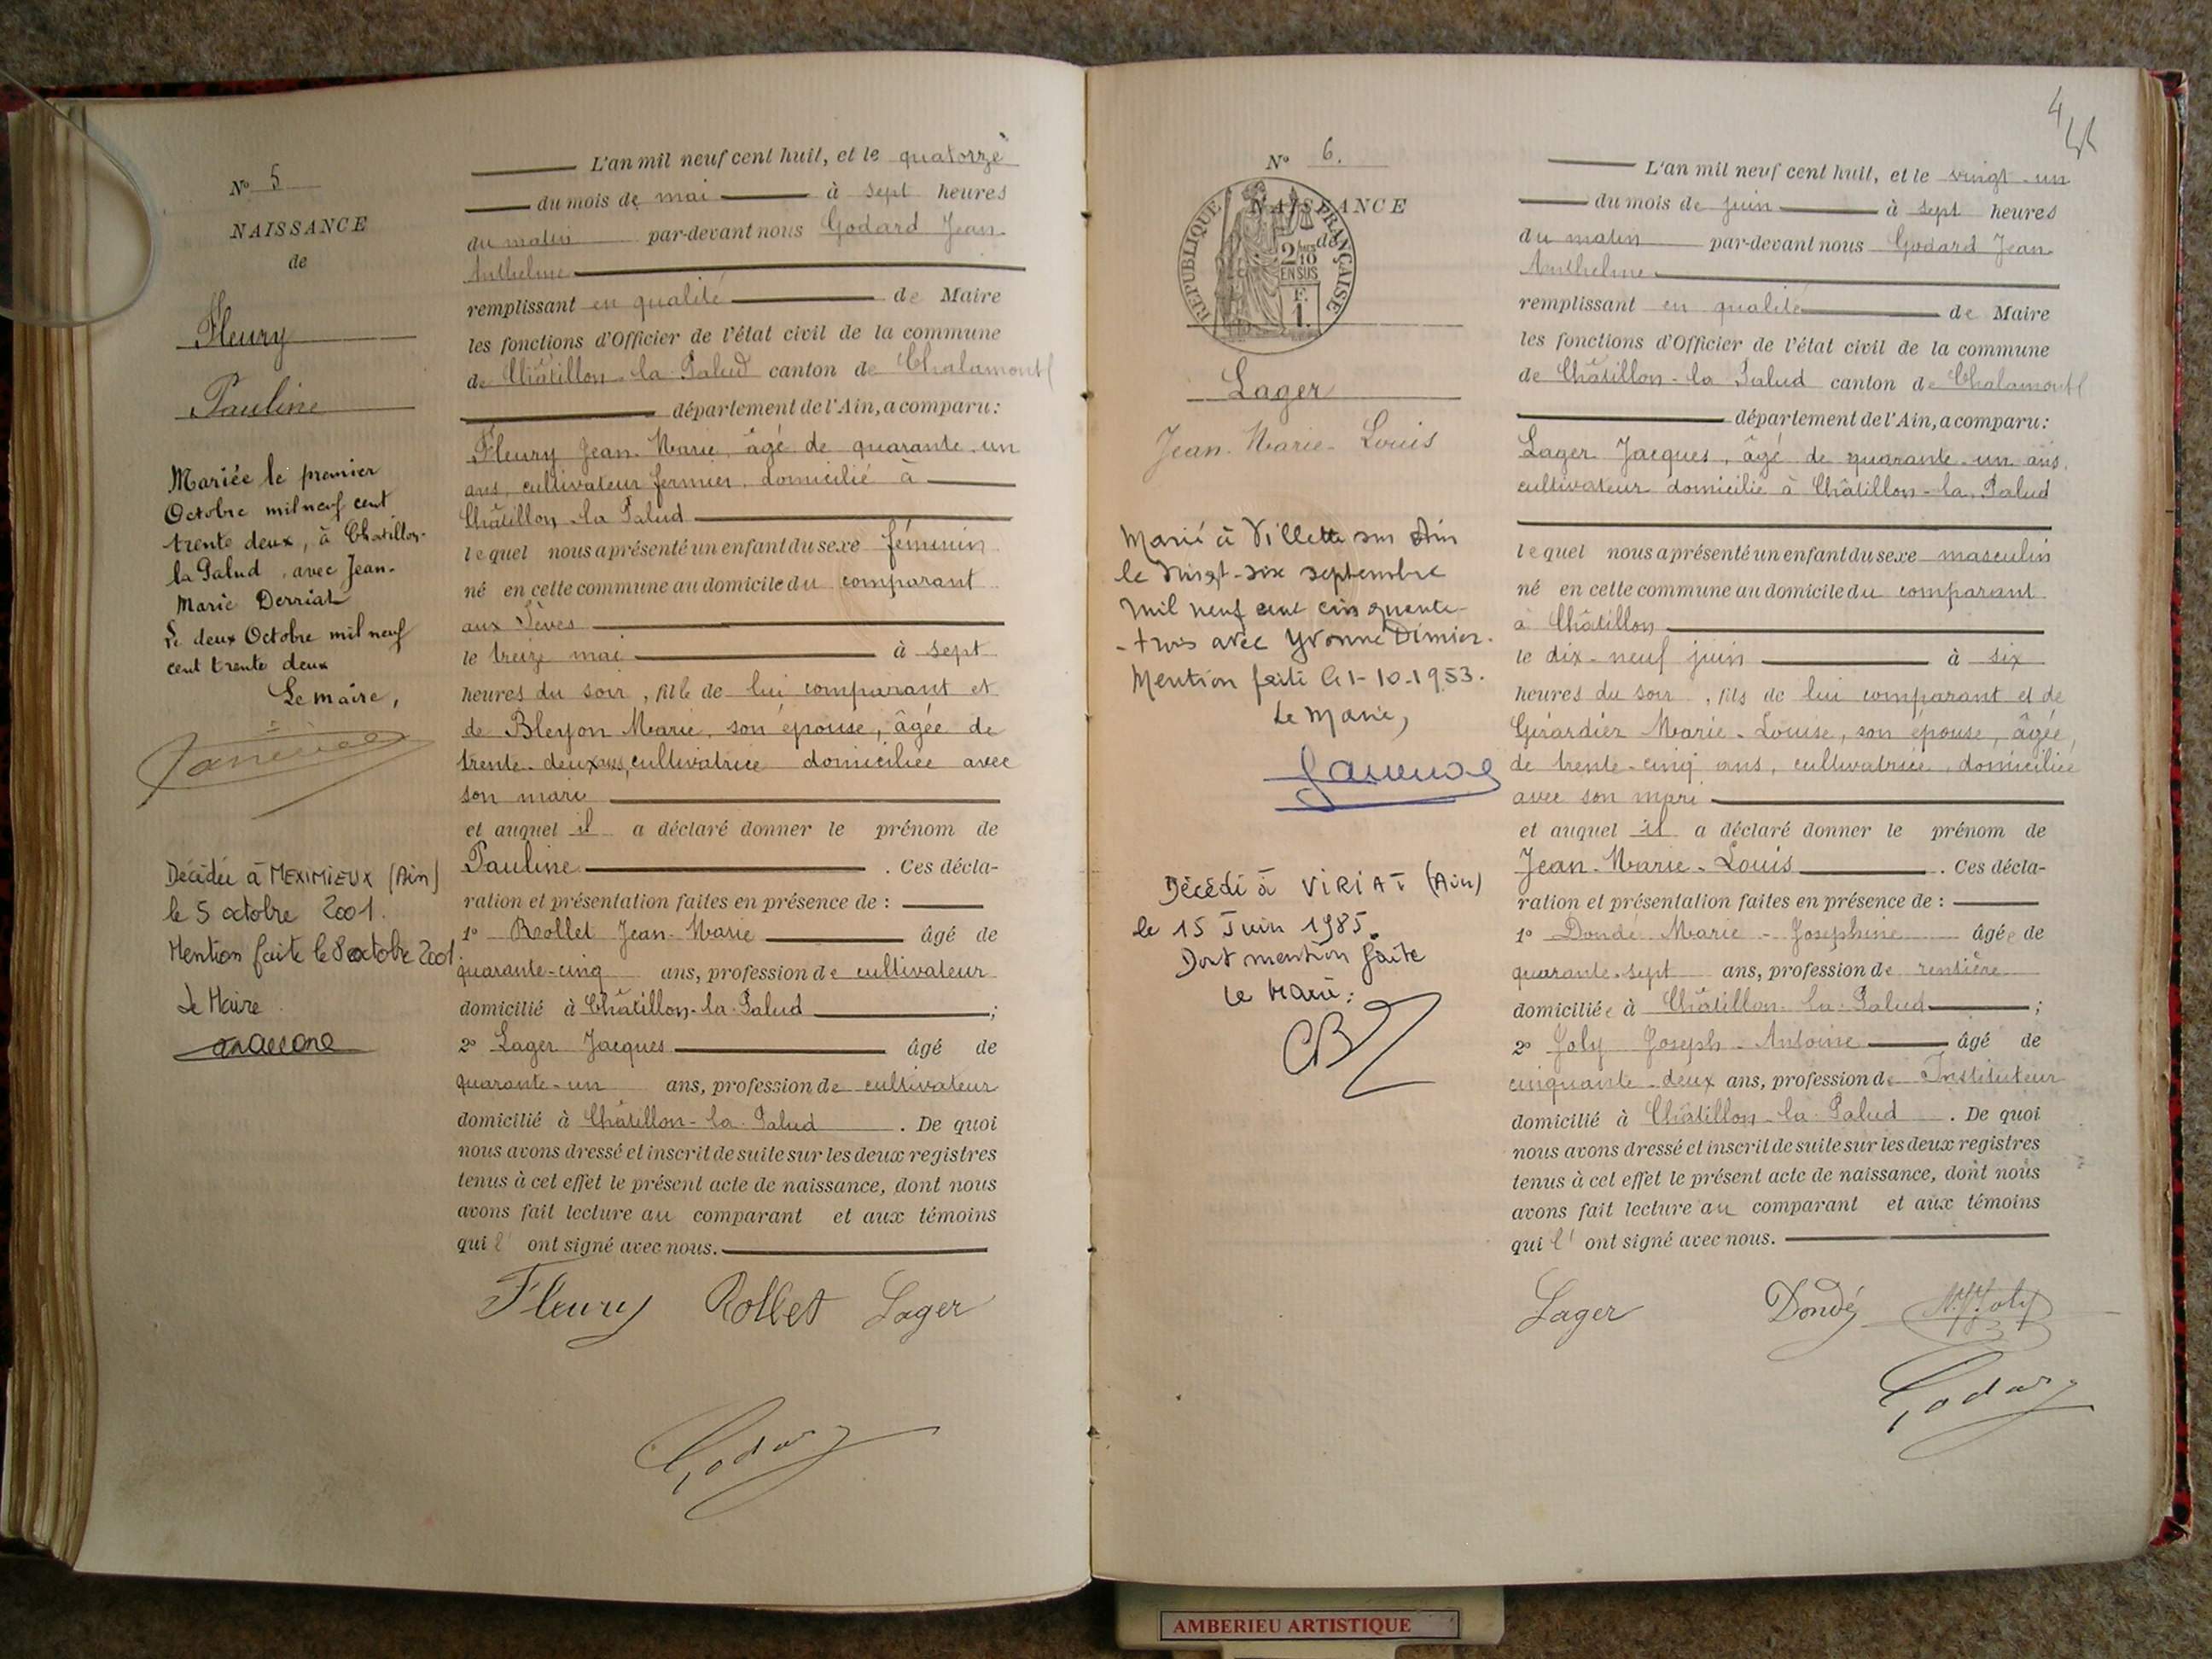 N° 5
NAISSANCE
de
Fleury
Pauline
Mariée le premier
Octobre mil neuf cent
trente deux, à Chatillon-
la Palud, avec Jean-
Marie Derriat
Le deux Octobre mil neuf
cent trente deux
Le maire,
Décédée à MEXIMIEUX (Ain)
le 5 octobre 2001.
Mention faite le 8 octobre 2001.
Le Maire
L'an mil neuf cent huit, et le quatorze
du mois de mai à sept heures
du matin par-devant nous Godard Jean
Anthelme
remplissant en qualité de Maire
les fonctions d'Officier de l'état civil de la commune
de Châtillon-la-Palud canton de Chalamont
département de l'Ain, a comparu:
Fleury Jean-Marie, âgé de quarante-un
ans, cultivateur fermier, domicilié à
Châtillon-la Palud
lequel nous a présenté un enfant du sexe féminin
né en cette commune au domicile du comparant
aux
le treize mai à sept
heures du soir, fille de lui comparant et
de Bleyon Marie, son épouse, âgée de
trente-deux ans, cultivatrice domiciliée avec
son mari
et auquel il a déclaré donner le prénom de
Pauline. Ces décla-
ration et présentation faites en présence de :
1° Rollet Jean-Marie âgé de
quarante-cinq ans, profession de cultivateur
domicilié à Châtillon-la-Palud ;
2° Lager Jacques âgé de
quarante-un ans, profession de cultivateur
domicilié à Châtillon-la-Palud. De quoi
nous avons dressé et inscrit de suite sur les deux registres
tenus à cet effet le présent acte de naissance, dont nous
avons fait lecture au comparant et aux témoins
qui l' ont signé avec nous.
Fleury Rollet Lager
Godard
4
N° 6.
NAISSANCE
de
RÉPUBLIQUE FRANÇAISE
2/10
EN SUS
F.
1.
Lager
Jean-Marie-Louis
Marié à Villette sur Ain
le vingt-six septembre
mil neuf cent cinquante-
-trois avec Yvonne Dimier.
Mention faite le 1-10-1953.
Le Maire,
Décédé à VIRIAT (Ain)
le 15 Juin 1985.
Dont mention faite
Le Maire:
L'an mil neuf cent huit, et le vingt-un
du mois de juin à sept heures
du matin par-devant nous Godard Jean
Anthelme
remplissant en qualité de Maire
les fonctions d'Officier de l'état civil de la commune
de Châtillon-la Palud canton de Chalamont
département de l'Ain, a comparu:
Lager Jacques, âgé de quarante-un ans,
cultivateur domicilié à Châtillon-la-Palud
lequel nous a présenté un enfant du sexe masculin
né en cette commune au domicile du comparant
à Châtillon
le dix-neuf juin à six
heures du soir, fils de lui comparant et de
Girardier Marie-Louise, son épouse, âgée,
de trente-cinq ans, cultivatrice, domiciliée
avec son mari
et auquel il a déclaré donner le prénom de
Jean-Marie-Louis. Ces décla-
ration et présentation faites en présence de :
1° Dondé Marie-Josephine âgée de
quarante-sept ans, profession de rentière
domiciliée à Châtillon-la-Palud ;
2° Joly Joseph-Antoine âgé de
cinquante-deux ans, profession de Instituteur
domicilié à Châtillon-la-Palud. De quoi
nous avons dressé et inscrit de suite sur les deux registres
tenus à cet effet le présent acte de naissance, dont nous
avons fait lecture au comparant et aux témoins
qui l' ont signé avec nous.
Lager Dondé Joly
Godard
AMBERIEU ARTISTIQUE